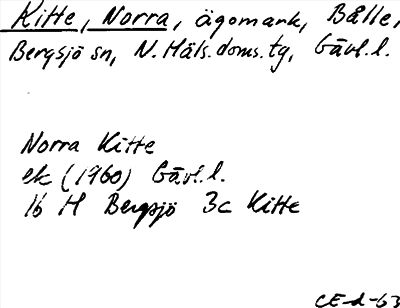 Kitte, Norra, ägomark, Bålle,
Bergsjö sn, N. Häls. doms. tg, Gävl. l.
Norra Kitte
ek (1960) Gävl. l.
16 H Bergsjö 3c Kitte
CE-d-63